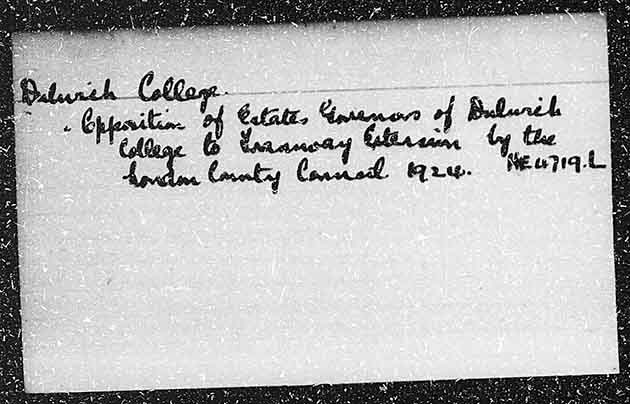 Dulwich College.
Opposition of Estates Governors of Dulwich
College to Tramway Extension by the
London County Council 1924. HE 4719.L